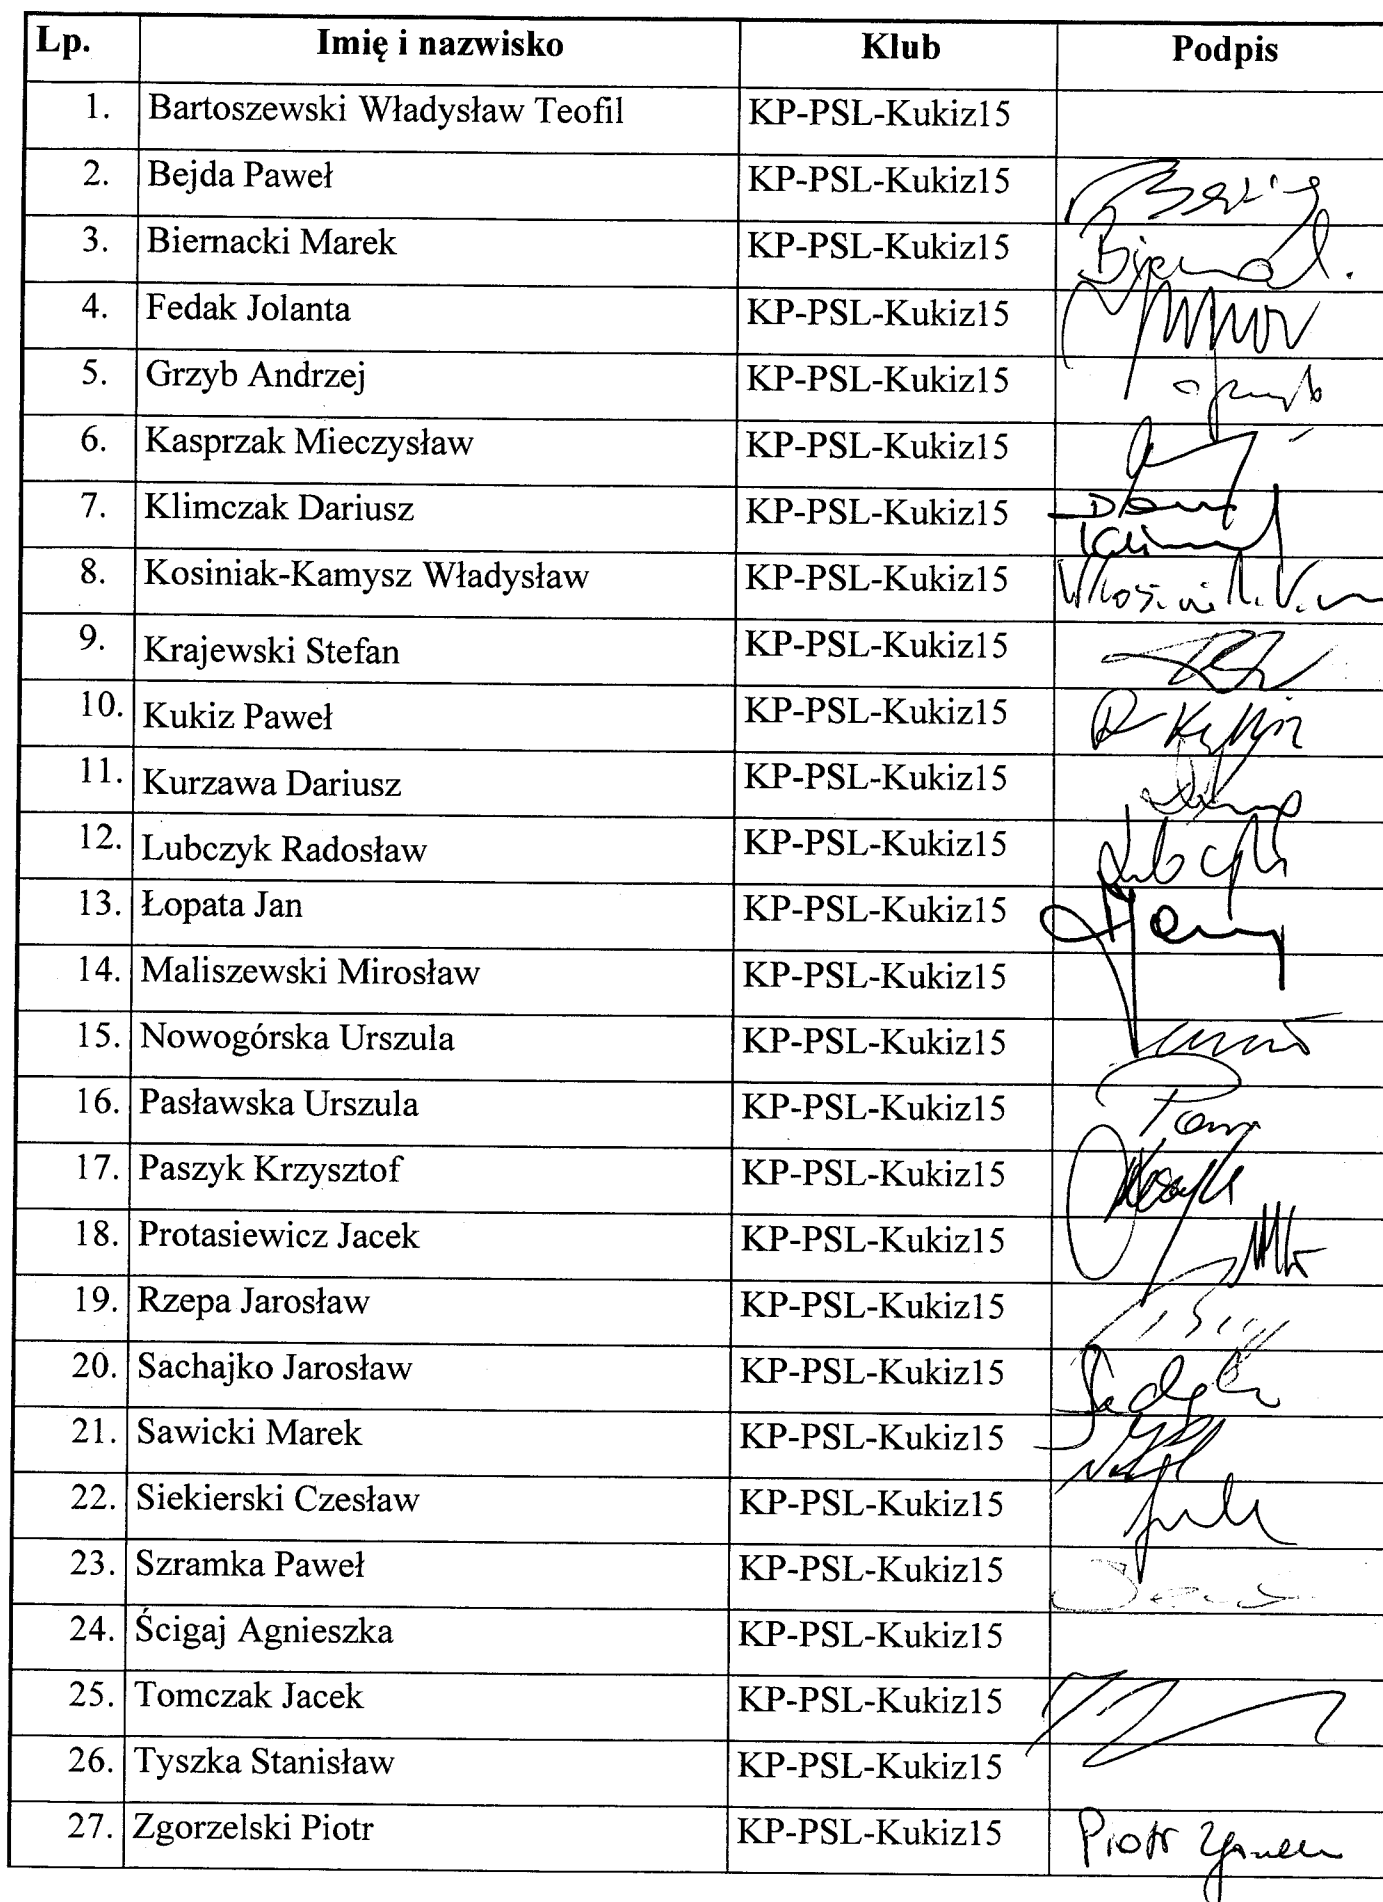 Lp. Imię i nazwisko Klub Podpis
1. Bartoszewski Władysław Teofil KP-PSL-Kukiz15
2. Bejda Paweł KP-PSL-Kukiz15
3. Biernacki Marek KP-PSL-Kukiz15
4. Fedak Jolanta KP-PSL-Kukiz15
5. Grzyb Andrzej KP-PSL-Kukiz15
6. Kasprzak Mieczysław KP-PSL-Kukiz15
7. Klimczak Dariusz KP-PSL-Kukiz15
8. Kosiniak-Kamysz Władysław KP-PSL-Kukiz15
9. Krajewski Stefan KP-PSL-Kukiz15
10. Kukiz Paweł KP-PSL-Kukiz15
11. Kurzawa Dariusz KP-PSL-Kukiz15
12. Lubczyk Radosław KP-PSL-Kukiz15
13. Łopata Jan KP-PSL-Kukiz15
14. Maliszewski Mirosław KP-PSL-Kukiz15
15. Nowogórska Urszula KP-PSL-Kukiz15
16. Pasławska Urszula KP-PSL-Kukiz15
17. Paszyk Krzysztof KP-PSL-Kukiz15
18. Protasiewicz Jacek KP-PSL-Kukiz15
19. Rzepa Jarosław KP-PSL-Kukiz15
20. Sachajko Jarosław KP-PSL-Kukiz15
21. Sawicki Marek KP-PSL-Kukiz15
22. Siekierski Czesław KP-PSL-Kukiz15
23. Szramka Paweł KP-PSL-Kukiz15
24. Ścigaj Agnieszka KP-PSL-Kukiz15
25. Tomczak Jacek KP-PSL-Kukiz15
26. Tyszka Stanisław KP-PSL-Kukiz15
27. Zgorzelski Piotr KP-PSL-Kukiz15 Piotr